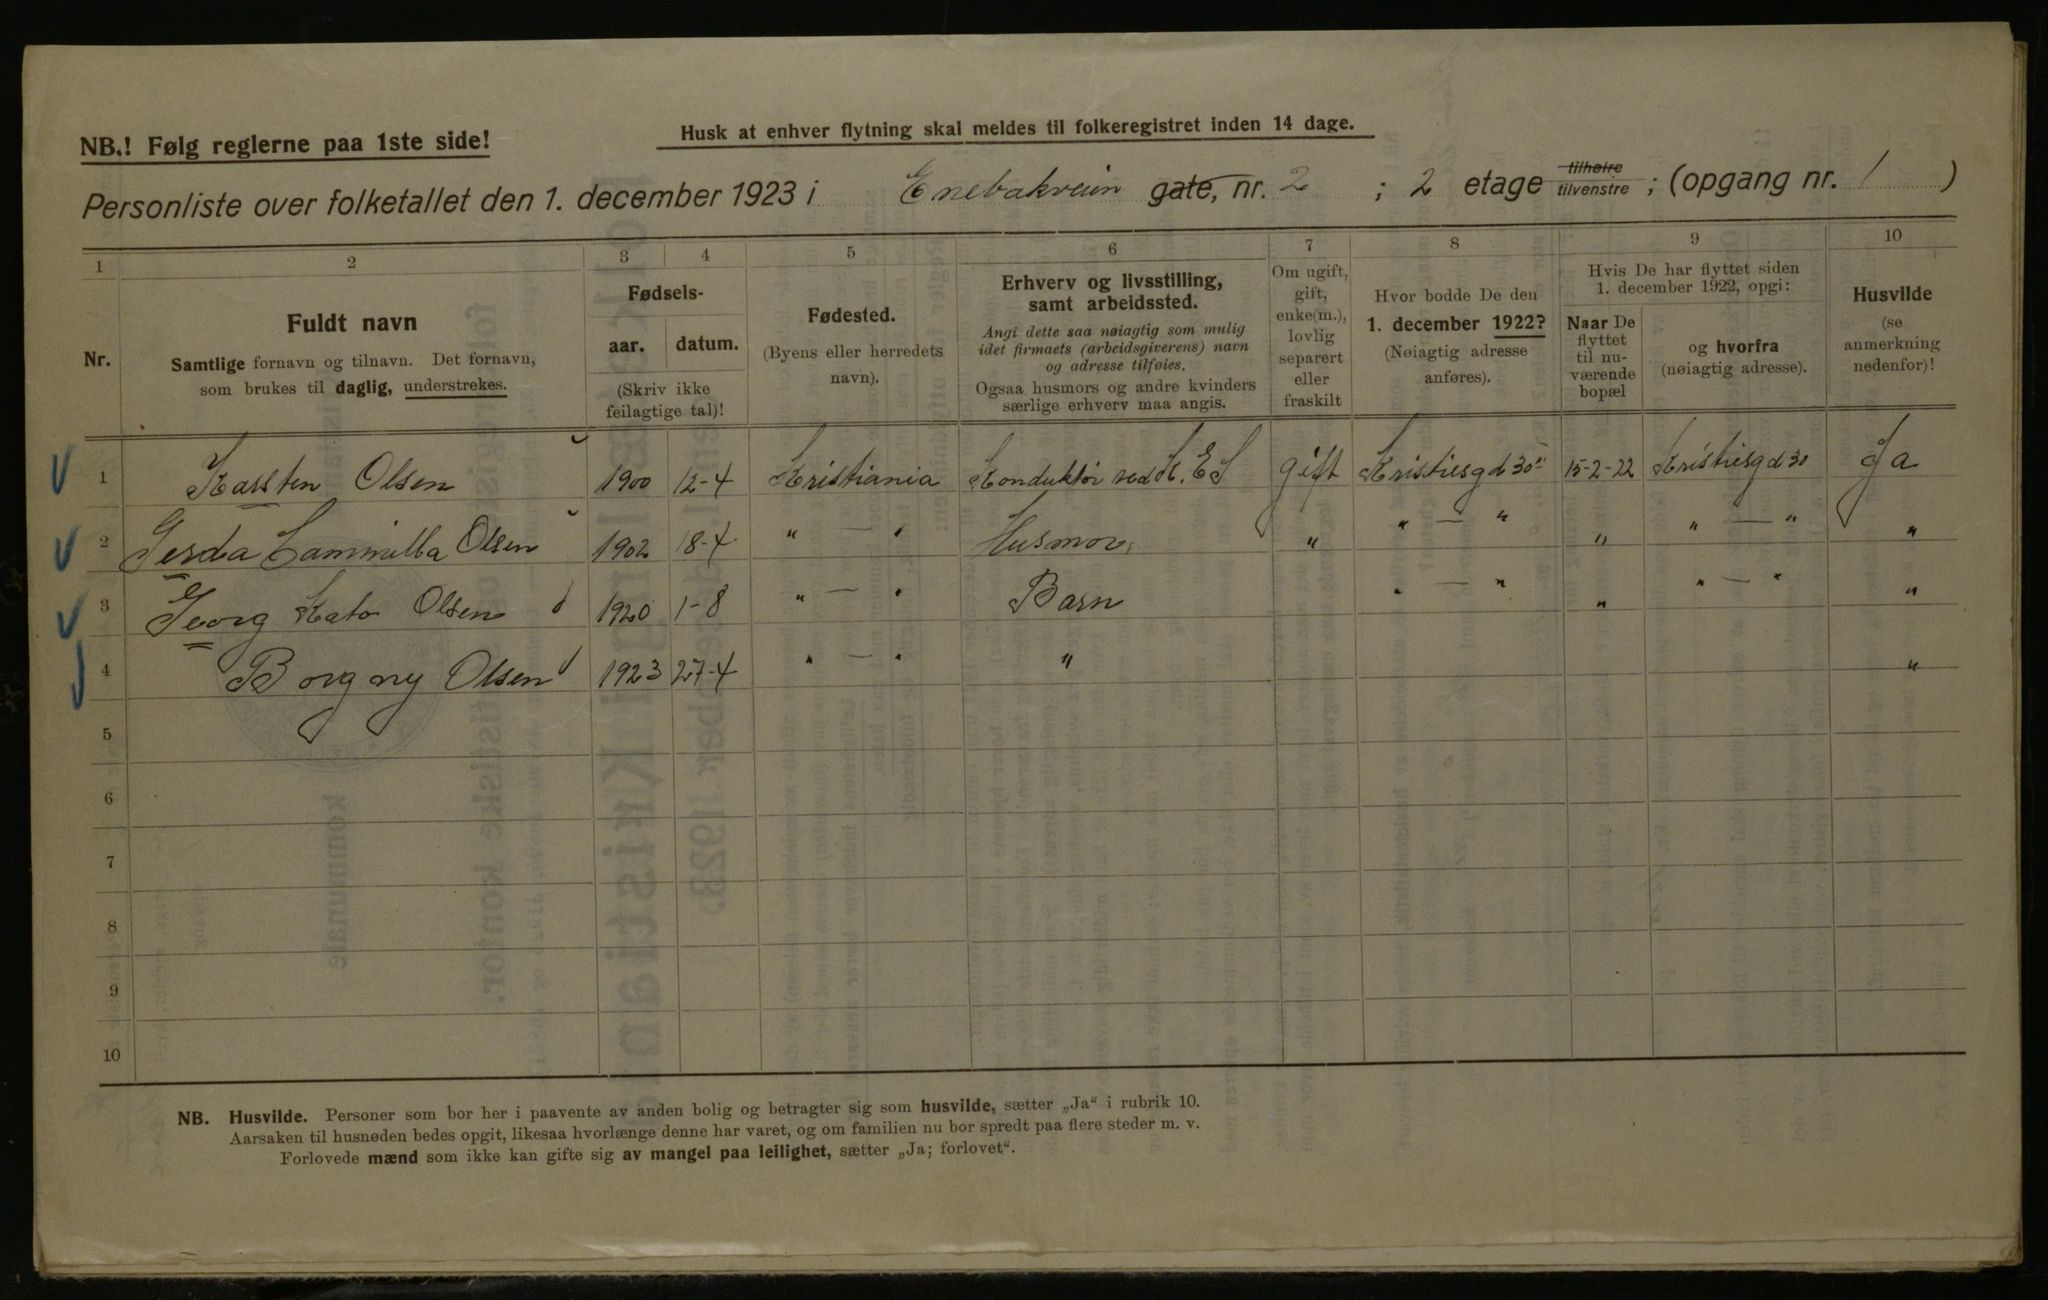 NB.! Følg reglerne paa 1ste side!
Husk at enhver flytning skal meldes til folkeregistret inden 14 dage.
Personliste over folketallet den 1. december 1923 i Enebakveien gate, nr. 2 ; 2 etage tilhøire tilvenstre ; (opgang nr. 1 )
1 2 3 4 5 6 7 8 9 10
Nr.
Fuldt navn
Samtlige fornavn og tilnavn. Det fornavn,
som brukes til daglig, understrekes.
Fødsels-
aar. datum.
(Skriv ikke
feilagtige tal)!
Fødested.
(Byens eller herredets
navn).
Erhverv og livsstilling,
samt arbeidssted.
Angi dette saa nøiagtig som mulig
idet firmaets (arbeidsgiverens) navn
og adresse tilføies.
Ogsaa husmors og andre kvinders
særlige erhverv maa angis.
Om ugift,
gift,
enke(m.),
lovlig
separert
eller
fraskilt
Hvor bodde De den
1. december 1922?
(Nøiagtig adresse
anføres).
Hvis De har flyttet siden
1. december 1922, opgi:
Naar De
flyttet
til nu-
værende
bopæl
og hvorfra
(nøiagtig adresse).
Husvilde
(se
anmerkning
nedenfor)!
1 Karsten Olsen 1900 12-4 Kristiania Konduktør ved K.E.S gift Kristiesgd 30 15-2-22 Kristiesgd 30 Ja
2 Gerda Cammilla Olsen 1902 18-4 " — " Husmor " " — " " " — " "
3 Georg Kato Olsen 1920 1-8 " — " Barn " — " " " — " "
4 Borgny Olsen 1923 27-4 " — " " "
5
6
7
8
9
10
NB. Husvilde. Personer som bor her i paavente av anden bolig og betragter sig som husvilde, sætter „Ja“ i rubrik 10.
Aarsaken til husnøden bedes opgit, likesaa hvorlænge denne har varet, og om familien nu bor spredt paa flere steder m. v.
Forlovede mænd som ikke kan gifte sig av mangel paa leilighet, sætter „Ja; forlovet“.